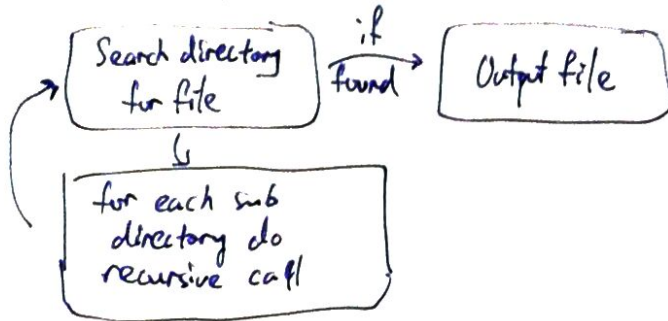 Search directory
for file
if
found
Output file
for each sub
directory do
recursive call